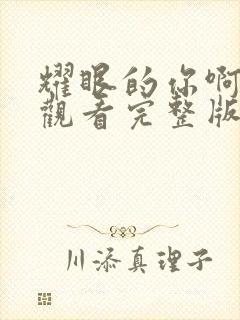 耀眼的你啊
觀看完整版
川添真理子